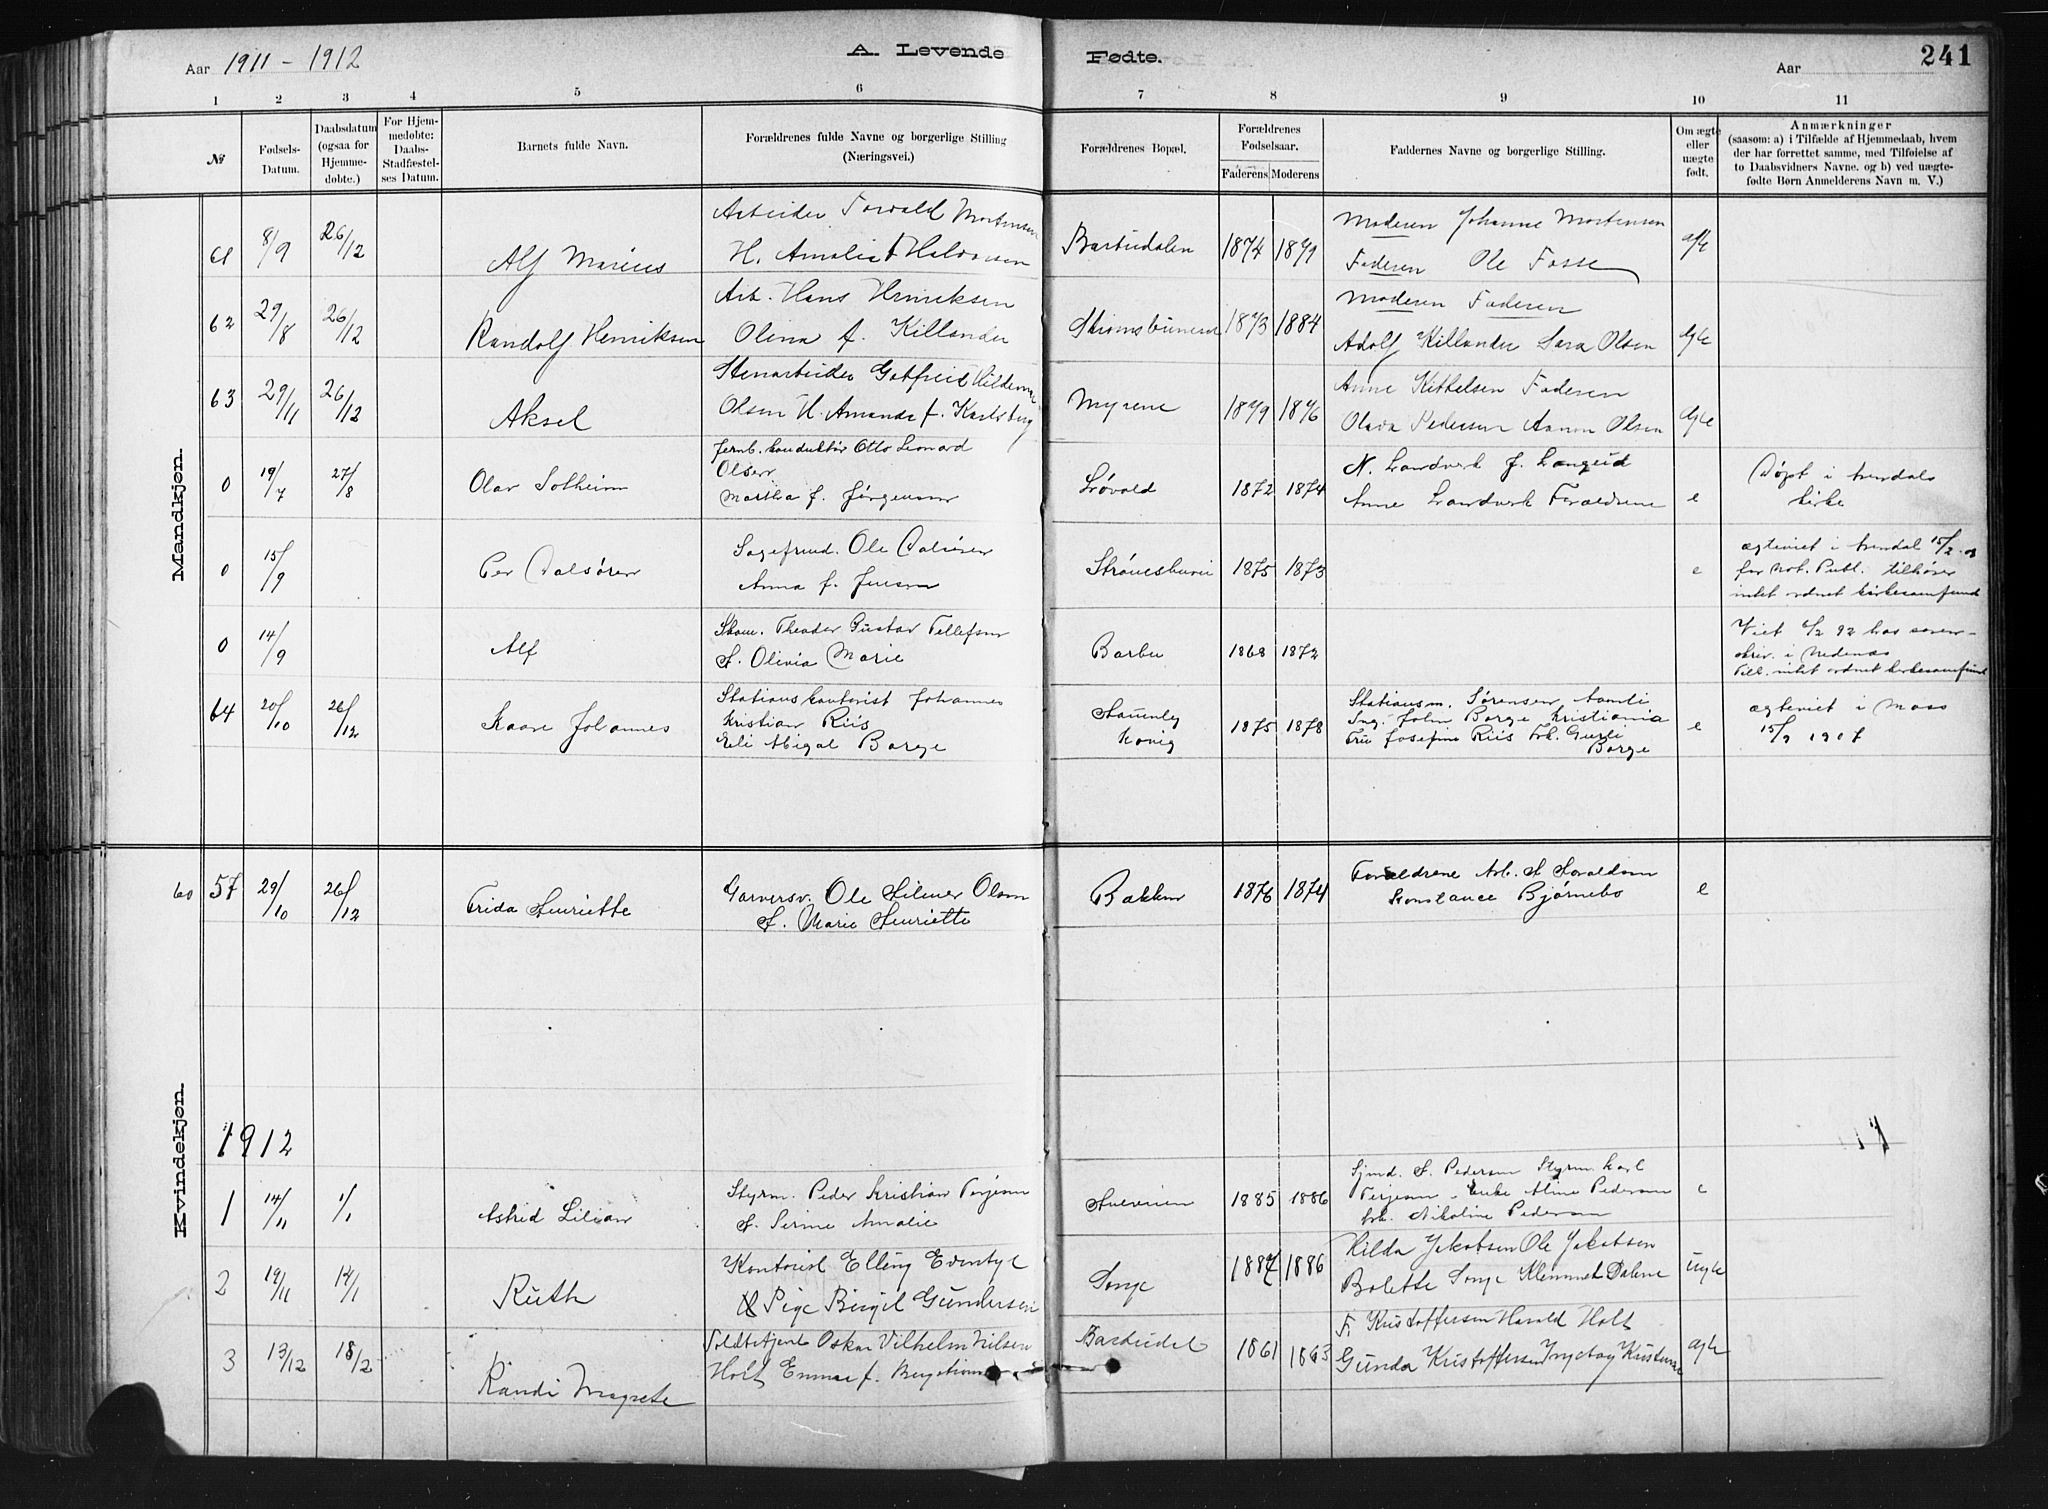 Aar 1911 - 1912
A. Levende
Fødte.
Aar
241
1 2 3 4 5 6 7 8 9 10 11
№
Fødsels-Datum.
Daabsdatum (ogsaa for Hjemme-døbte.)
For Hjem-medøbte: Daabs-Stadfæstel-ses Datum.
Barnets fulde Navn.
Forældrenes fulde Navne og borgerlige Stilling (Næringsvei.)
Forældrenes Bopæl.
Forældrenes Fødselsaar.
Faderens Moderens
Faddernes Navne og borgerlige Stilling.
Om ægte eller uægte født.
Anmærkninger
(saasom: a) i Tilfælde af Hjemmedaab, hvem
der har forrettet samme, med Tilføielse af
to Daabsvidners Navne. og b) ved uægte-
fødte Børn Anmelderens Navn m. V.)
Mandkjøn.
61 8/9 26/12 Alf Marius
Arbeider Torvald Mortensen
H. Amalia f Halvorsen
Barbudalen 1874 1879
Moderen Johanne Mortensen
Faderen Ole Fosse
62 29/8 26/12 Randolf Henriksen
Arb. Hans Henriksen
Olina f. Killander
1873 1884
Moderen Faderen
Adolf Killander Sara Olsen
63 29/11 26/12 Aksel
Stenarbeider Gotfred Hildemar
Olsen H. Amanda f. Karlsberg
Myrene 1879 1876
Anne Kittelsen Faderen
Olava Pedersen Aanon Olsen
0 19/7 27/8 Olav Solheim
Jernb. konduktør Otto Leonard
Olsen
Martha f. Jørgensen
Løvold 1872 1874
N. Landverk J. Langeid
Anne Landverk Forældrene
e
Døpt i Arendals
kirke
0 15/9 Per Dalsøren
Sagefmd. Ole Dalsøren
Anna f. Jensen
Strømsbuvei 1875 1873
e
ægteviet i Arendal 15/2
for Not. Publ. tilhører
intet ordnet kirkesamfund
0 14/9 Alf
Skom. Theodor Gustav Tellefsen
H. Olivia Marie
Barbu 1868 1872
Viet 6/2 92 hos soren-
skriv. i Nedenæs
Till. intet ordnet kirkesamfund
64 20/10 26/12 Kaare Johannes
Stationskontorist Johannes
Kristian Riis
Eli Abigal Borge
1875 1878
Stationsm. Sørensen Aamli
Ing. John Borge Kristiania
Fru Josefine Riis Frk. Gurli
Borge
e
ægteviet i Moss
15/9 1907
Kvindekjøn.
60 57 29/10 26/12 Frida Henriette
Garversv. Ole Hilmer Olsen
H. Marie Henriette
Bakken 1876 1874
Forældrene Arb. H Haraldsen
Konstance Bjørnebo
e
1912
1 14/11 1/1 Astrid Lilian
Styrm. Peder Kristian Terjesen
H. Serine Amalie
1885 1886
Sjmd. H. Pedersen Styrm. Karl
Terjesen. Enke Aline Pedersen
frk. Nikoline Pedersen
e
2 19/11 14/1 Ruth
Kontorist Elling Eventyr
Pige Birgit Gundersen
Songe 1887 1886
Hilda Jakobsen Ole Jakobsen
Bolette Songe Klemmet Dalene
3 13/12 18/2 Randi Magrete
Toldbetjent Oskar Vilhelm Nilsen
Holt Emma f. Bergstrøm
Barbudal 1861 1863
F. Kristoffersen Harald Holt
Gunda Kristoffersen